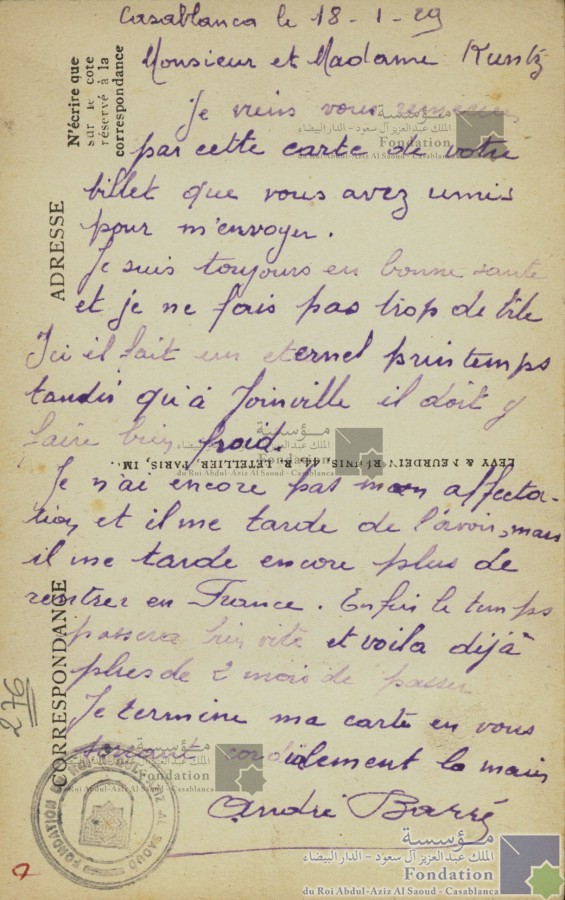 Casablanca le 18-1-29
Monsieur et Madame Kuntz
Je viens vous remercier
par cette carte de votre
billet que vous avez
pour m'envoyer.
Je suis toujours en bonne santé
et je ne fais pas trop de bile
Ici il fait un eternel printemps
tandis qu'à Joinville il doit y
faire bien froid.
Je n'ai encore pas mon affecta-
tion et il me tarde de l'avoir, mais
il me tarde encore plus de
rentrer en France. Enfin le temps
passera bien vite et voila déjà
plus de 2 mois de passer
Je termine ma carte en vous
serrant cordialement la main
André Barré
N'écrire que
sur le côté
réservé à la
correspondance
ADRESSE
CORRESPONDANCE
LEVY & NEURDEIN RÉUNIS, 44, R. LETELLIER, PARIS, IM
276
FONDATION DU ROI ABDUL-AZIZ AL SAOUD
مؤسسة
الملك عبد العزيز آل سعود - الدار البيضاء
Fondation
du Roi Abdul-Aziz Al Saoud - Casablanca
مؤسسة
الملك عبد العزيز آل سعود - الدار البيضاء
Fondation
du Roi Abdul-Aziz Al Saoud - Casablanca
مؤسسة
الملك عبد العزيز آل سعود - الدار البيضاء
Fondation
du Roi Abdul-Aziz Al Saoud - Casablanca
مؤسسة
الملك عبد العزيز آل سعود - الدار البيضاء
Fondation
du Roi Abdul-Aziz Al Saoud - Casablanca